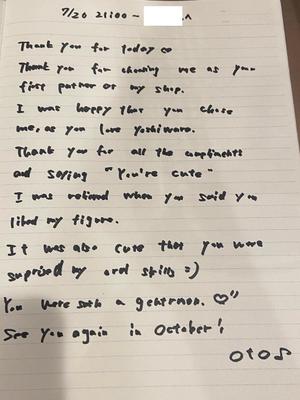 7/20 21:00 -
Thank you for today ♡
Thank you for choosing me as your
first partner of my shop.
I was happy that you chose
me, as you love yoshiwara.
Thank you for all the compliments
and saying "You're cute"
I was relieved when you said you
liked my figure.
It was also cute that you were
suprised my oral skills =)
You were such a gentrman. ♡"
See you again in October!
OTO♫